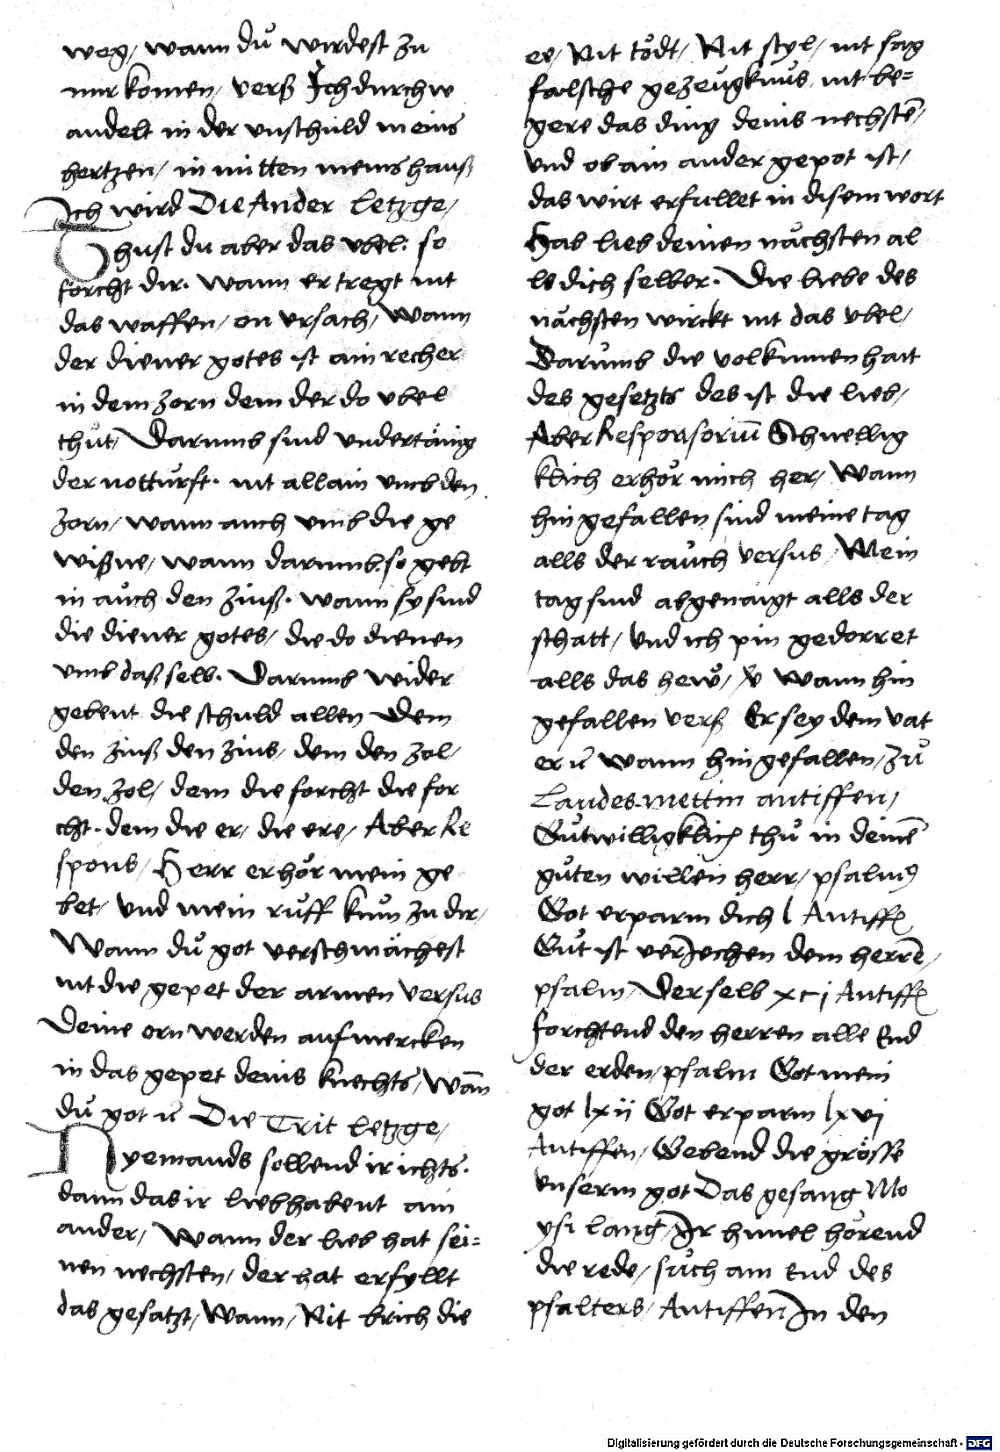 weg, wann dů wirdest zu
mir komen, verß Ich durchw
andelt in der vnschuld meins
hertzen, in mitten meins hauß
Ich wird Die Ander Letzge,
Thust du aber das vbel. so
förcht dir. wann er tregt nit
das waffen, on vrsach, Wann
der diener gotes ist ain recher
in dem zorn dem der do vbel
thůt, Darumb sind vndertänig
der notturft. nit allain vmb den
zorn, wann auch vmb die ge
wißne, wann darumb so gebt
in aůch den zinß. wann sy sind
die diener gotes, die do dienen
vmb daß selb. Darumb wider
gebent die schuld allen Dem
den zinß den zins, dem den zol,
den zol, dem die forcht die for
cht. dem die er, die ere, Aber Re
spons, Herr erhör mein ge
bet, vnd mein růff kum zu dir,
Wann dů got verschmächest
nit die gepet der armen versus
Deine orn werden aufmercken
in das gepet deins knechts, Wān
dů got ꝛc Die Trit Letzge,
Nyemands sollend ir ichts.
dann das ir liebhabent ain
ander, Wann der lieb hat sei=
nen nechsten, der hat erfyllt
das gesatzt, Wann, Nit brich die
ee, Nit tödt, Nit styl, nit sag
falsche gezeugknus, nit be=
gere das ding deins nechstē,
vnd ob ain ander gepot ist,
das wirt erfullet in disem wort
Hab lieb deinen nächsten al
ls dich selber. Die liebe des
nächsten wirckt nit das vbel,
Darumb die volkumenhait
des gesetzts des ist die lieb,
Aber Responsoriū Schnellig
klich erhör mich her, Wann
hin gefallen sind meine tag
alls der rauch versus, Mein
tag sind abgenaigt alls der
schatt, vnd ich pin gedorret
alls das hew, ꝟ Wann hin
gefallen verß Er sey dem vat
er ꝛc wann hin gefallen, Zů
Laudes mettin antiffen,
Gůtwilligklich thů in deinē
gůten willen herr, psalmꝰ
Got erparm dich l Antiff
Gůt ist verJechen dem herrē,
psalm, Der selb xci Antiff
Forchtend den herren alle End
der erden, psalm Got mein
got lxii Got erparm lxvi
Antiffen, Gebend die grösse
vnserm got Das gesang Mo
ysi lang, Ir himel hörend
die rede, sůch am End des
psalters, Antiffen In den
Digitalisierung gefördert durch die Deutsche Forschungsgemeinschaft - DFG